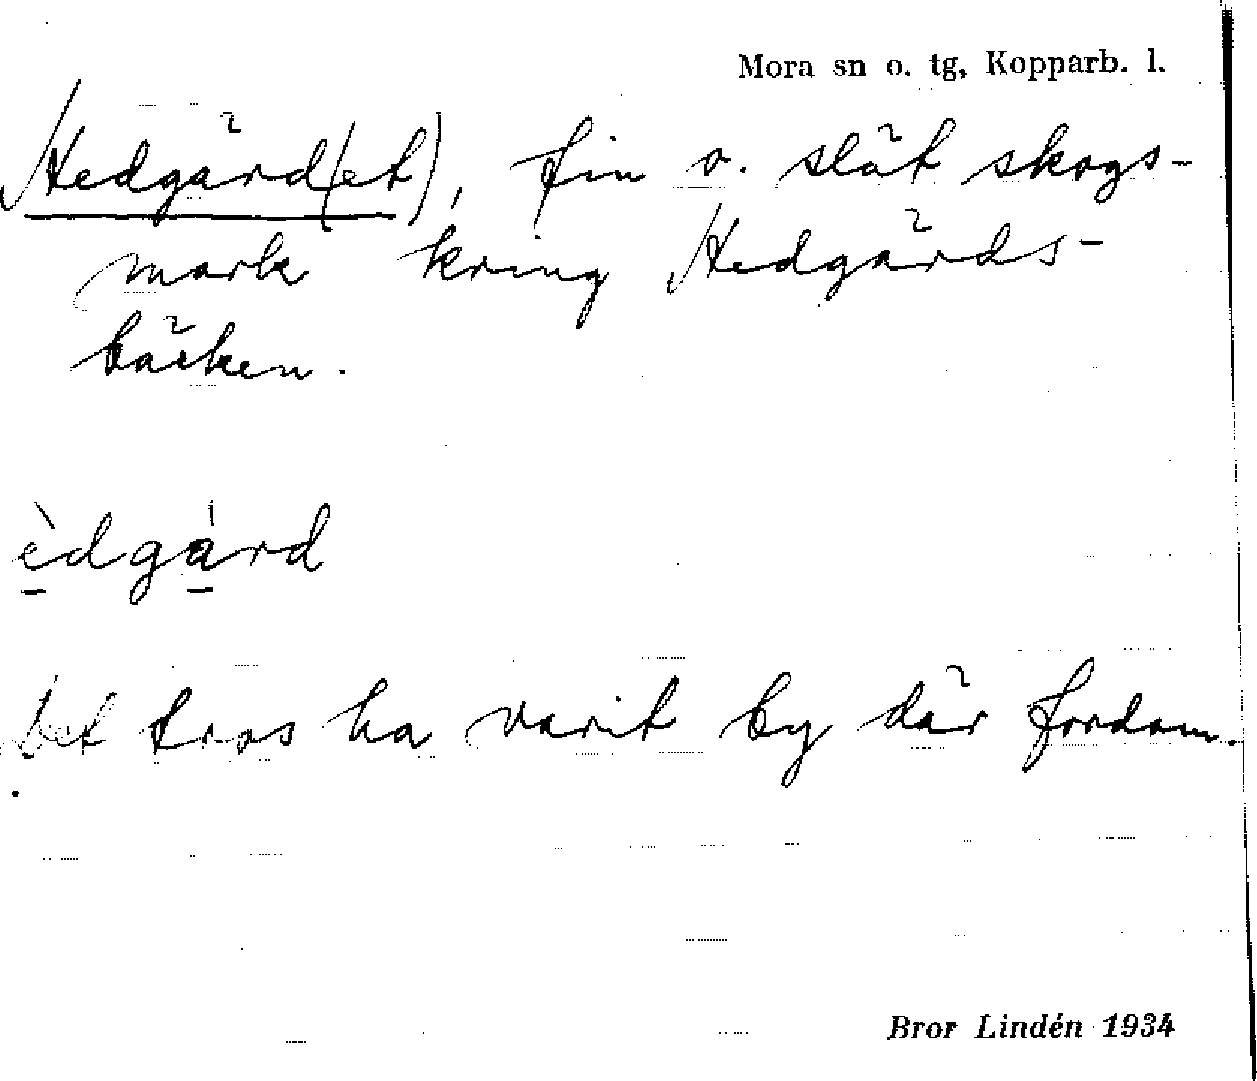 Mora sn o. tg, Kopparb. l.
Hedgärd(et), fin o. slät skogs-
mark kring Hedgärds-
bäcken.
èdgȧrd
Det tros ha varit by där fordom.
Bror Lindén 1934